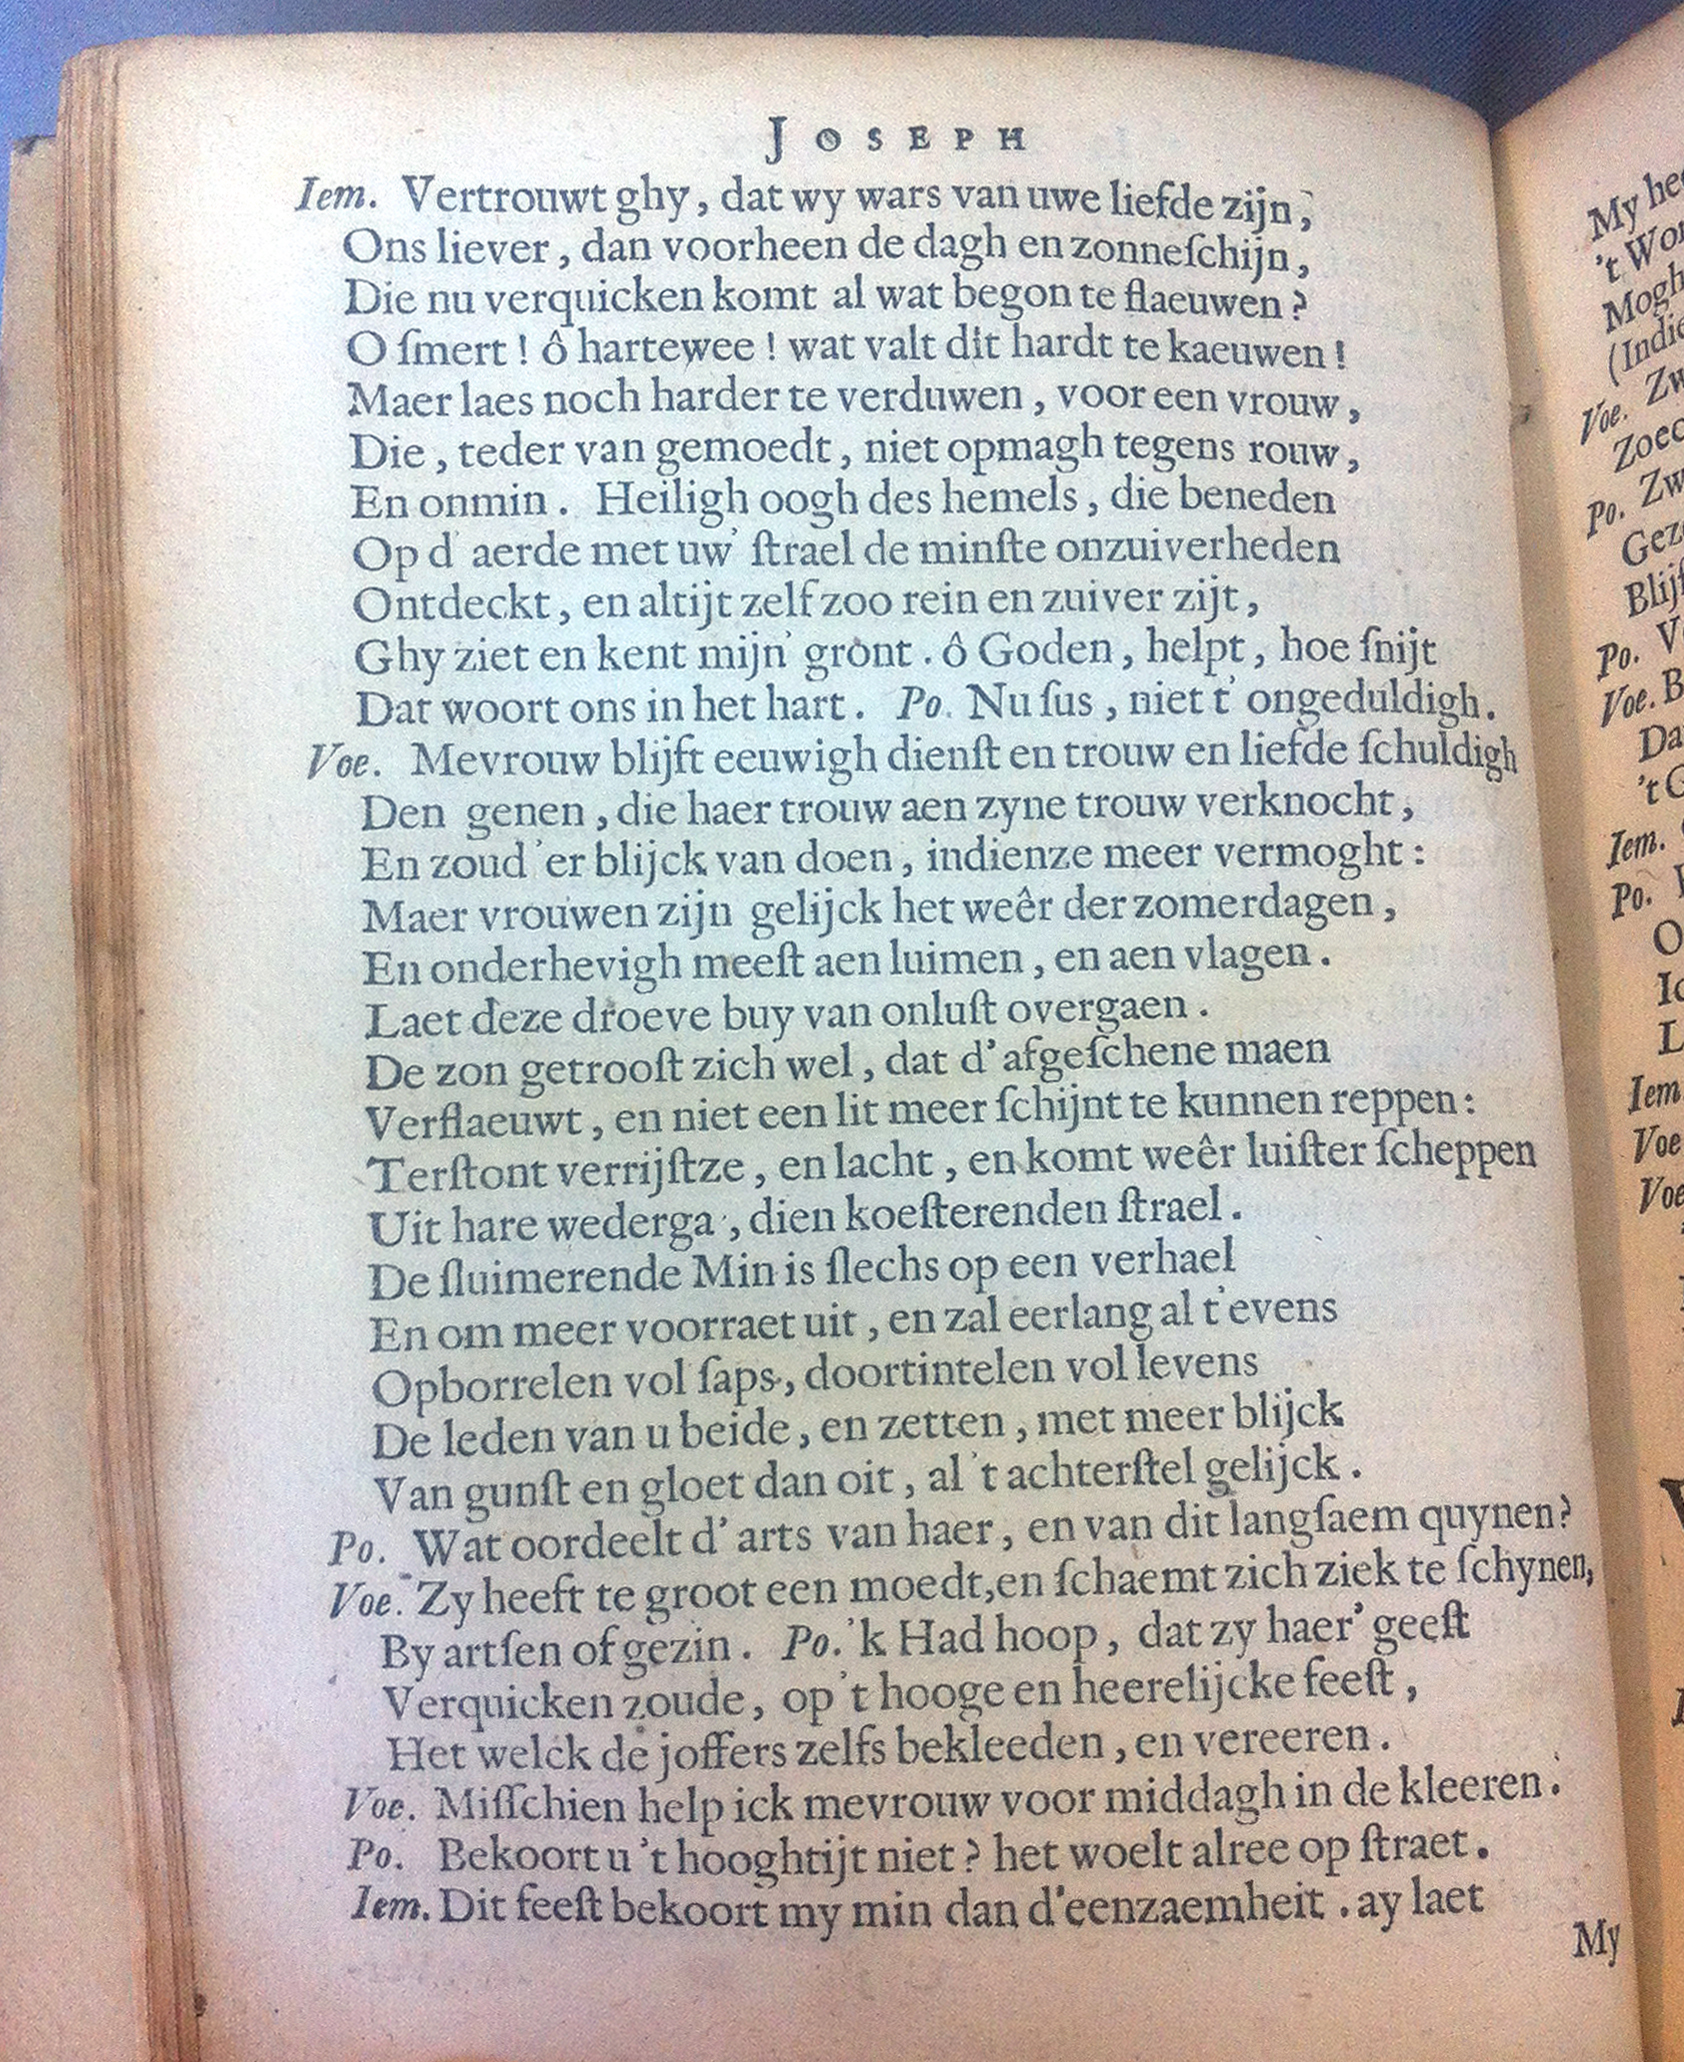 JOSEPH
Iem. Vertrouwt ghy, dat wy wars van uwe liefde zijn,
Ons liever, dan voorheen de dagh en zonneſchijn,
Die nu verquicken komt al wat begon te flaeuwen?
O ſmert! ô hartewee! wat valt dit hardt te kaeuwen!
Maer laes noch harder te verduwen, voor een vrouw,
Die, teder van gemoedt, niet opmagh tegens rouw,
En onmin. Heiligh oogh des hemels, die beneden
Op d' aerde met uw' ſtrael de minſte onzuiverheden
Ontdeckt, en altijt zelf zoo rein en zuiver zijt,
Ghy ziet en kent mijn' gront. ô Goden, helpt, hoe ſnijt
Dat woort ons in het hart. Po. Nu ſus, niet t' ongeduldigh.
Voe. Mevrouw blijft eeuwigh dienſt en trouw en liefde ſchuldigh
Den genen, die haer trouw aen zyne trouw verknocht,
En zoud 'er blijck van doen, indienze meer vermoght:
Maer vrouwen zijn gelijck het weêr der zomerdagen,
En onderhevigh meeſt aen luimen, en aen vlagen.
Laet deze droeve buy van onluſt overgaen.
De zon getrooſt zich wel, dat d' afgeſchene maen
Verflaeuwt, en niet een lit meer ſchijnt te kunnen reppen:
Terſtont verrijſtze, en lacht, en komt weêr luiſter ſcheppen
Uit hare wederga', dien koeſterenden ſtrael.
De ſluimerende Min is ſlechs op een verhael
En om meer voorraet uit, en zal eerlang al t'evens
Opborrelen vol ſaps, doortintelen vol levens
De leden van u beide, en zetten, met meer blijck
Van gunſt en gloet dan oit, al 't achterſtel gelijck.
Po. Wat oordeelt d' arts van haer, en van dit langſaem quynen?
Voe. Zy heeft te groot een moedt, en ſchaemt zich ziek te ſchynen,
By artſen of gezin. Po. 'k Had hoop, dat zy haer' geeſt
Verquicken zoude, op 't hooge en heerelijcke feeſt,
Het welck de joffers zelfs bekleeden, en vereeren.
Voe. Miſſchien help ick mevrouw voor middagh in de kleeren.
Po. Bekoort u 't hooghtijt niet? het woelt alree op ſtraet.
Iem. Dit feeſt bekoort my min dan d'eenzaemheit. ay laet
My
My
't
Mogh
(Indi
Voe.
Po.
Po.
Voe.
Iem.
Po.
Iem
Voe
Voe